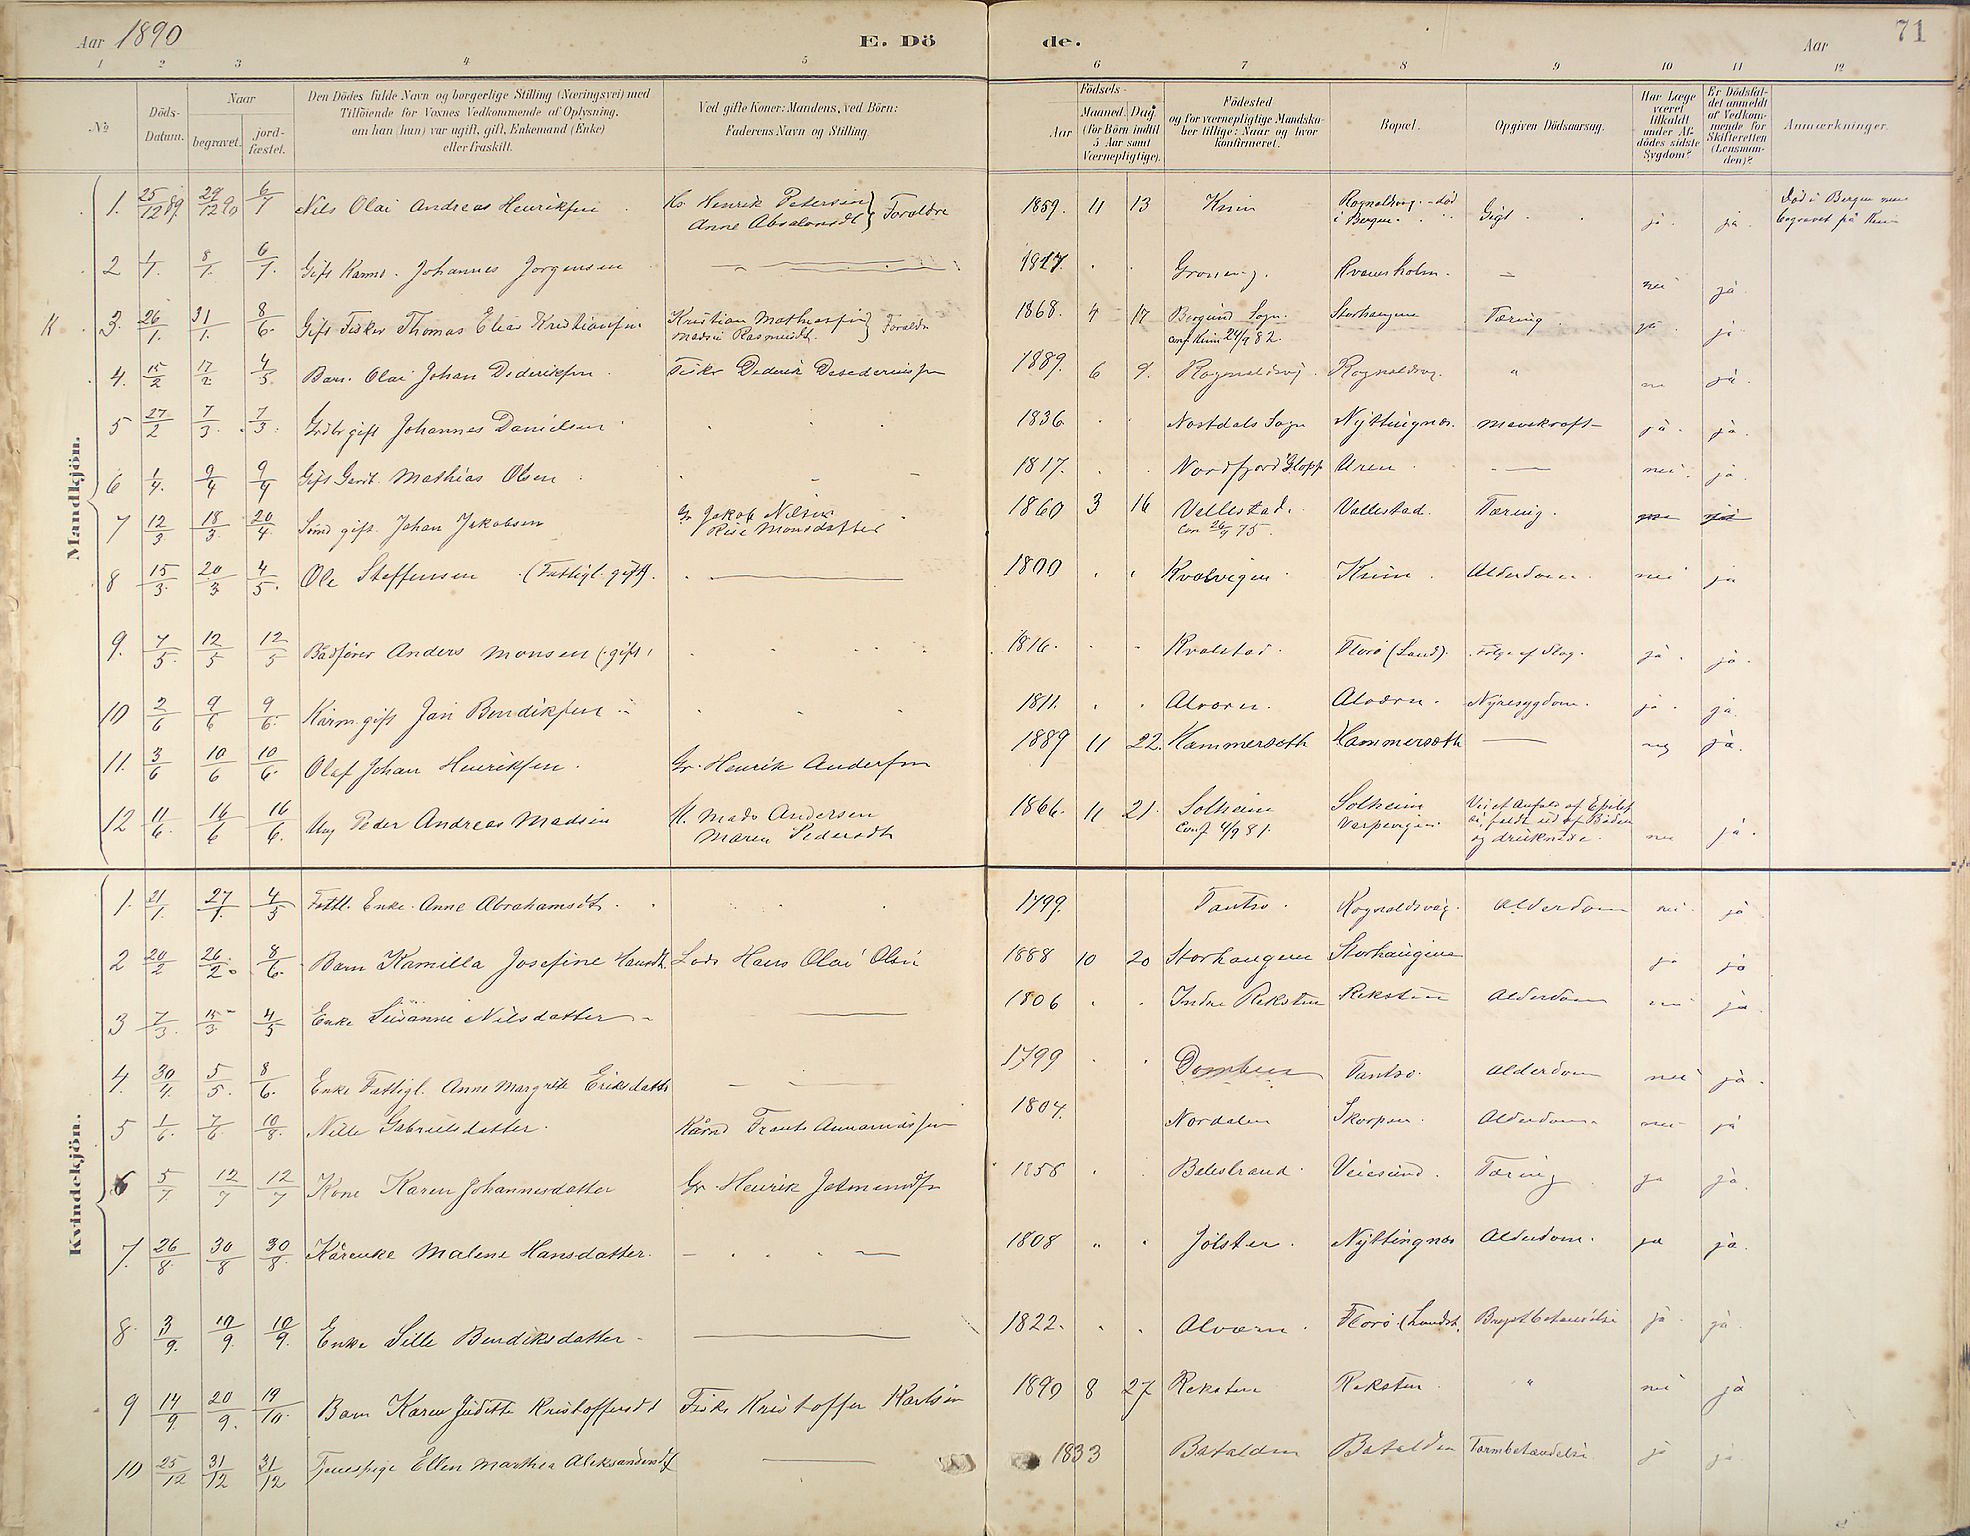 Aar 1890 E. Döde. Aar 71
1 2 3 4 5 6 7 8 9 10 11 12
No
Döds-Datum.
Naar
begravet. jordfæstet.
Den Dödes fulde Navn og borgerlige Stilling (Næringsvei) med
Tilföiende for Voxnes Vedkommende af Oplysning,
om han (hun) var ugift, gift, Enkemand (Enke)
eller fraskilt.
Ved gifte Koner: Mandens, ved Börn:
Faderens Navn og Stilling.
Födsels-
Aar Maaned. Dag.
(for Börn indtil
5 Aar samt
Værnepligtige).
Födested
og for værnepligtige Mandskaber tillige: Naar og hvor
konfirmeret.
Bopæl.
Opgiven Dödsaarsag.
Har Læge
været
tilkaldt
under Afdödes sidste
Sygdom?
Er Dödsfaldet anmeldt
af Vedkommende for
Skifteretten
(Lensmanden)?
Anmærkninger.
Mandkjön.
1. 25/12 89. 29/12 90 6/1 Nils Olai Andreas Henriksen Henrik Petersen Anne Absalonsdt } Forældre 1859. 11 13 Kinn Rognaldsvg. - död i Bergen. Gigt. ja. ja. Död i Bergen men begravet på Kinn
2 1/1. 8/1. 6/1. Gift Johannes Jorgensen 1817. Kvanholm. — nei ja
K 3. 26/1. 31/1. 8/6. Gift Fisker Thomas Elias Kristiansen Kristian Mathiassen } Forældre 1868. 4 17 Bergund Sogn. conf Kinn 24/9 82. Storhaugene Tæring. ja. ja
4. 15/2 17/2 4/5 Barn. Olai Johan Dederiksen. Fisker Dederik 1889. 6 9. Rognaldsvg. " ja.
5 27/2 7/3. 7/3. gift Johannes Danielsen 1836 Nostdals Sogn Nyttingnæs. Mavekræft ja. ja.
6 1/4. 9/4 9/4 Gift Mathias Olsen 1817. Nordfjord Glopp — nei. ja.
7 12/3 18/3. 20/4. gift. Johan Jakobsen Gr Jakob Nilsen Monsdatter 1860 3 16 Vallestad. Con 26/9 75. Vallestad. Tæring.
8 15/3. 20/3 4/5. Ole Steffensen (Fattigl. gift). 1800 Kvalvigen Kinn. Alderdom. nei ja
9. 7/5. 12/5 12/5 Bådfører Anders Monsen (gift) 1816. Kvalstad. Florø (Land). ja. ja.
10 2/6 9/6 9/6. gift Jan Bendiksen 1811. Alværn. Alværn. Nyresygdom. ja. ja.
11. 3/6 10/6 10/6. Olaf Johan Henriksen. Gr. Henrik Andersen 1889 11 22. Hammersøth Hammersøth — ja.
12 11/6. 16/6 16/6. Ung Peder Andreas Madsen Mads Andersen Maren Pedersdt 1866. 11 21. Solheim Conf 4/9 81. Solheim Ved et Anfald af Epilepsi, faldt ud af Båden og druknede. nei ja.
Kvindekjön.
1. 21/1. 27/1. 4/5 Fattl. Enke. Anne Abrahamsdt. 1799. Tansø. Rognaldsvåg. Alderdom nei. ja
2 20/2 26/2. 8/6. Barn Kamilla Josefine Hansdt. Lods Hans Olai Olsen 1888 10 20 Storhaugene Storhaugene ja ja
3 7/3. 15/3. 4/5 Enke Susanne Nilsdatter 1806 Indre Reksten Reksten Alderdom nei ja
4. 30/4. 5/5. 8/6. Enke Fattigl. Anne Margrete Eriksdatter 1799 Tansø. Alderdom nei ja.
5 1/6. 7/6. 10/8. Nille Gabrielsdatter. 1804. Nordalen Skorpen. Alderdom. nei ja
6 5/7 12/7 12/7 Kone Karen Johannesdatter Gr. Henrik 1856 Balestrand. Veiesund. Tæring ja ja.
7. 26/8. 30/8 30/8. Kårenke Malene Hansdatter. 1808 " Jølster. Nyttingnæs Alderdom. ja ja.
8. 3/9. 10/9. 10/9. Enke Sille Bendiksdatter 1822. Alværn. Florø (Landst. Brystbetændelse ja. ja.
9 14/9. 20/9. 19/10. Barn Karen Juditte Kristoffersdt Fisker Kristoffer Karlsen 1890 8 27 Reksten Reksten. " nei ja
10 25/12 31/12 31/12 Tjenespige Ellen Marthea Aleksandersdt 1833 Batalden Batalden Tarmbetændelse. ja ja.